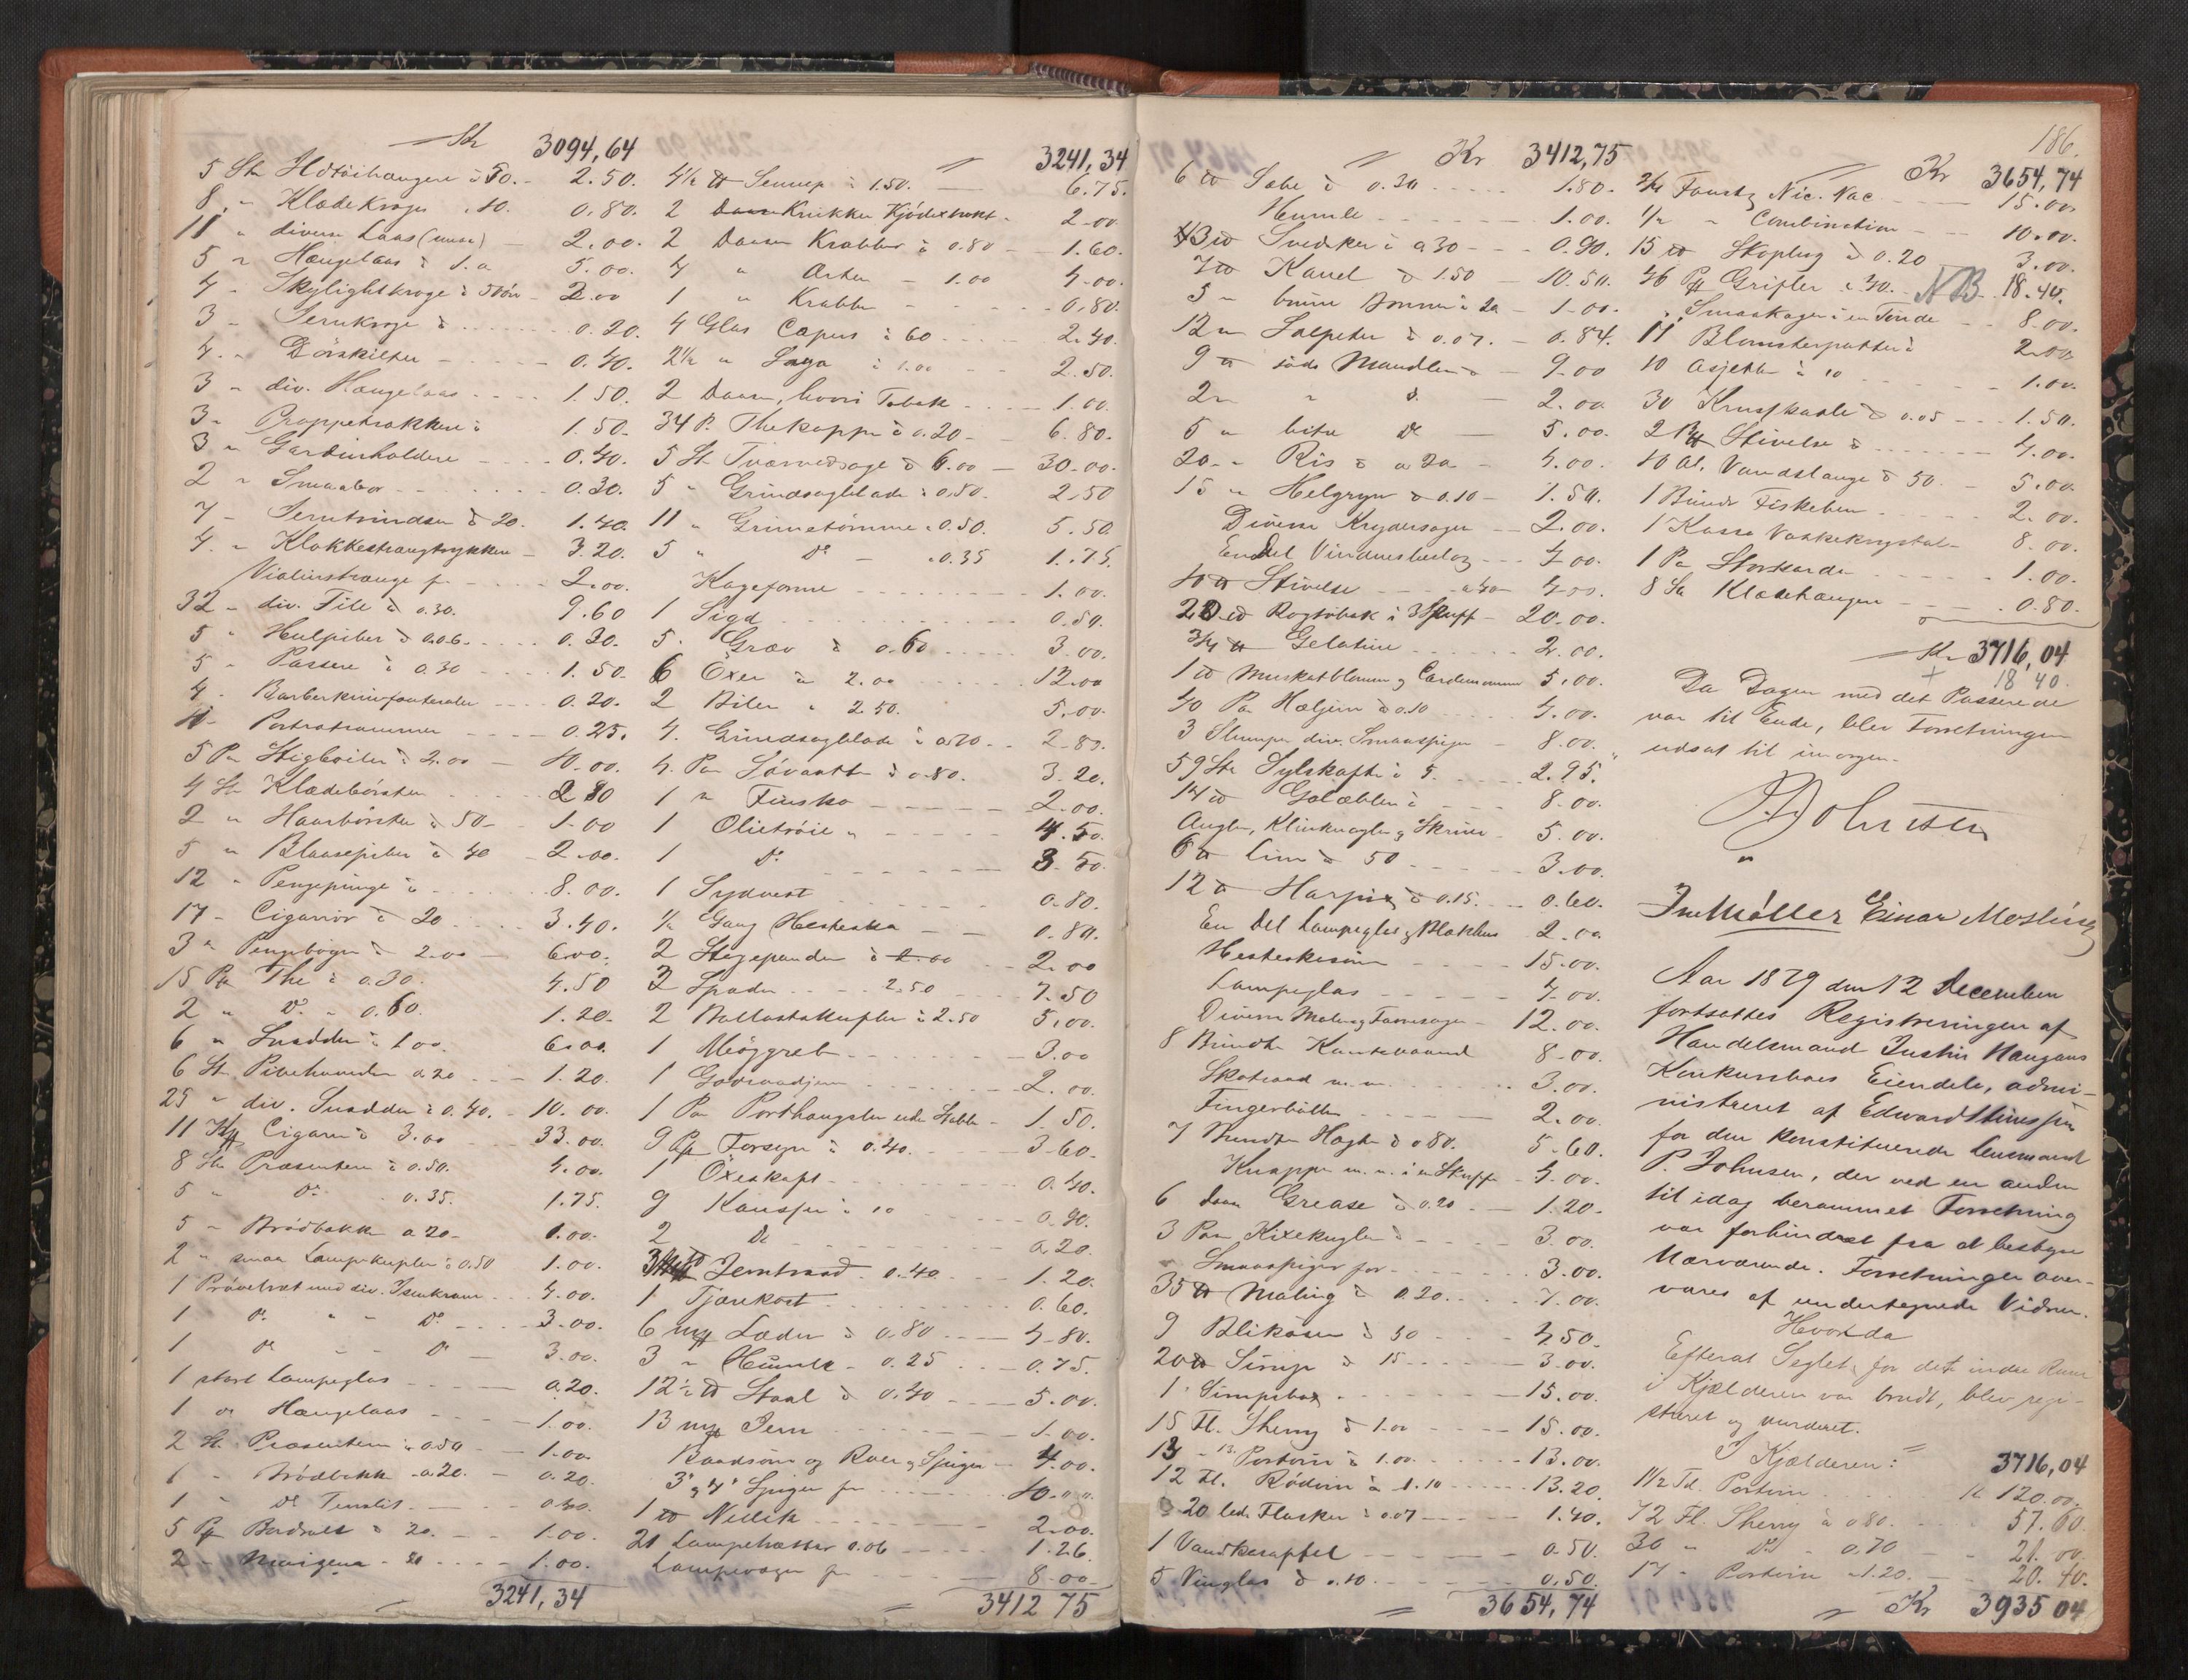 Kr 3094,64
5 St. à 50. - 2.50.
8. " Klædekroge " 10. 0.80.
11 " diverse Laas (muse) - 2.00.
5 " Hængelaas à 1.00 5.00.
4 - Skylightkroge à 50 Øre - 2.00
3 - Jernkroge à 0.20.
4. " Dörskilter - 0.40.
3 " div. Hængelaas 1.50.
3 - Proppetrækkere à 1.50.
3 " Gardinholdere 0.40.
2 " Smaabor 0.30.
7 - à 20. 1.40.
4. " Klokkestrængtrykker - 3.20.
Violinstrænge for 2.00.
32 - div. File à 0.30. 9.60
5 " Hulpiber à 0.06. 0.30.
5 - Passere à 0.30 1.50.
4 - Barberknivfouteraler 0.20.
- Portrætrammer 0.25.
5 Par Stigbøiler à 2.00 - 10.00.
4 St. Klædebørster 2 80
2 " Haarbørster à 50 - 1.00
5 " Blaasepiber à 40 - 2.00.
12 " Pengepunge à 8.00.
17 - Cigarrør à 20 3.40.
3 " Pengebøger à 2.00 - 6.00.
15 Pk The à 0.30. 4.50
2 " Do " 0.60. 1.20.
6 " Snadder à 1.00. 6.00.
6 St. Pibehoveder à 20 1.20.
25 " div. Snadder à 0.40. - 10.00.
11 Cigarer à 3.00 33.00.
8 St. Præsenter à 0.50. 4.00.
5 " Do 0.35. 1.75.
5 " Brødbakke à 20 - 1.00.
2 " smaa Lampekupler à 0.50 1.00.
1 Prøvebræt med div. Isenkram 4.00.
1 Do " " Do 3.00.
1 Do - - Do 3.00.
1 stort Lampeglas 0.20.
1 " Hængelaas 1.00.
2 St. Præsenter à 0.50 1.00.
1 " Brødbakke - à 20. - 0.20.
1 " Do 0.40.
5 Pk à 20. 1.00.
2 - - 50 1.00.
3241,34
" 3241,34
4½ ℔ Sennep à 1.50. 6.75.
2 Krukker Kjødextrakt - 2.00.
2 Daaser Krabber à 0.80 - 1.60.
4 " Erter - 1.00 4.00.
1 " Krabber - 0.80.
4 Glas Capers à 60 2.40.
2½ " Sago à 1.00 2.50.
2 Daaser, hvori Tobak 1.00.
34 P. Thekopper à 0.20 - 6.80.
5 St. Tværvedsage à 6.00 - 30.00.
5 " Grindsagblade à 0.50. 2.50
11 " Grimetømme à 0.50. 5.50.
5 " Do - à 0.35 1.75.
Kageforme 1.00.
1 Sigd 0.50.
5. Græv à 0.60 3.00.
6 Öxer à 2.00 12.00
2 Biler à 2.50. 5.00.
4. Grindsagblade à 0.70. 2.80.
4. Par Søvanter à 0.80. 3.20.
1 " Finsko 2.00.
1 Olietrøie " 4.50.
1 Do 3.50.
1 Sydvest 0.80.
½ Gang Hestesko 0.80.
2 Stegepander à 1.00 2.00
3 Spader 2.50 7.50
2 Ballastskufler à 2.50 5.00.
1 Møggreb 3.00
1 2.00.
1 Par Porthængsler uden Stabler - 1.50.
9 Forsyn à 0.40. 3.60.
1 Öxeskaft 0.40.
9 Kausser à 10 0.90.
2 Do 0.20.
3 Jerntraad à 0.40 1.20.
1 Tjærekost 0.60.
6 Læder à 0.80 4.80.
3 " Humle - 0.25 0.75.
12½ ℔ Staal à 0.40 5.00.
13 Jern 1.00.
Baadsøm og Roer og Spiger 4.00.
3" og 4" Spiger for 10.00.
1 ℔ Nellik 2.00.
21 Lampehatter 0.06 1.26.
Lampevæger for 8.00.
" 3412 75
" Kr 3412,75
6 ℔ Sæbe à 0.30 1.80.
Humle 1.00.
3 ℔ Svedsker à 0.30 0.90.
7 ℔ Kanel à 1.50 10.50.
5 " brune Bønner à 20 - 1.00.
12 " Salpeter à 0.07. - 0.84.
9 ℔ søde Mandler à - 9.00
2 " " d. - 2.00
5 " bitre Do - 5.00.
20 " Ris à 0.20 - 4.00.
15 " Helgryn à 0.10 - 1.50.
Diverse Krydersager - 2.00.
Endel Vinduesbeslag 4.00.
10 ℔ Stivelse à 40 4.00.
20 ℔ Røgtobak i 3 Skuff - 20.00.
3/4 ℔ Gelatine 2.00.
1 ℔ Muskatblomme og Cardemomme 5.00.
40 Par Hæljern à 0.10 4.00.
3 Slumper div. Smaaspiger - 8.00.
59 Stk Sylskafter à 5. 2.95.
14 ℔ Galæbler à 8.00.
Angler, Klinknagler og Skruer 5.00.
6 ℔ Lim à 50 3.00.
12 ℔ Harpix à 0.15. 0.60.
En Del Lampeglas og Blækhus 2.00
Hesteskosøm 15.00.
Lampeglas 4.00.
Diverse Maler og Farvesager - 12.00.
8 Bundter Kantebaand 8.00.
Skotraad m.m. 3.00.
Fingerbøller 2.00.
7 Bundter Hægter à 0.80. 5.60.
Knapper m.m. i en Skuffe - 4.00.
6 Daaser Grease à 0.20 1.20.
3 Par Kixekugler à 3.00.
Smaaspiger for 3.00.
35 ℔ Maling à 0.20. 7.00.
9 Blikdaaser à 50 4.50.
20 ℔ Sirup à 15 3.00.
1 15.00.
15 Fl. Sherry à 1.00 15.00.
13 - Portvin à 1.00 13.00.
12 Fl. Rødvin à 1.10 13.20.
20 ledige Flasker à 0.07 1.40.
1 Vandkaraffel 0.50.
5 Vinglas à 0.10. 0.50.
" 3654,74
186.
" Kr 3654,74
2/4 Faustg Nic. Nac 15.00.
½ " Combination 10.00.
15 ℔ Skoplug à 0.20 3.00.
46 Pk Grifler à 40. NB 18.40.
" Smaakager i en Tønde 8.00.
11 Blomsterpotter à 2.00.
10 Asjetter à 10 1.00.
30 à 0.05 1.50.
2 Stivelse à 4.00.
10 Al. Vandslange à 50. 5.00.
1 Bundt Fiskeben 2.00.
1 Kasse Vaskekrystal - 8.00.
1 Par 1.00.
8 St. Klædehænger 0.80.
Kr 3716,04
+ 18 40.
Da Dagen med det Passerede
var til Ende, blev Forretningen
udsat til imorgen.
P. Johnsen
"
Einar Mosling
Aar 1879 den 12 December
fortsattes Registreringen af
Handelsmand Justin Haugans
Konkursboes Eiendele, admi-
nistreret af Edward
for den konstituerede Lensmand
P. Johnsen, der ved en anden
til idag berammet Forretning
var forhindret fra at bestyre
Nærværende. Forretningen over-
vares af undertegnede Vidner.
Hvorda
Efterat Seglet for det indre Rum
i Kjælderen var brudt, blev regi-
streret og vurderet.
I Kjælderen: 3716,04
1½ Td. Portvin Kr 120.00.
72 Fl. Sherry à 0.80. 57.60.
30 " Do " 0.70 21.00.
17 " Portvin - 1.20. 20.40.
" Kr 3935 04